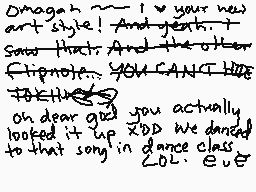 Omagah ~~ I ♥ your new
art style! And yeah. I
saw that. And the other
Flipnote... YOU CAN'T HIDE
oh dear god you actually
looked it up X'DD We danced
to that song in dance class.
LOL. eue